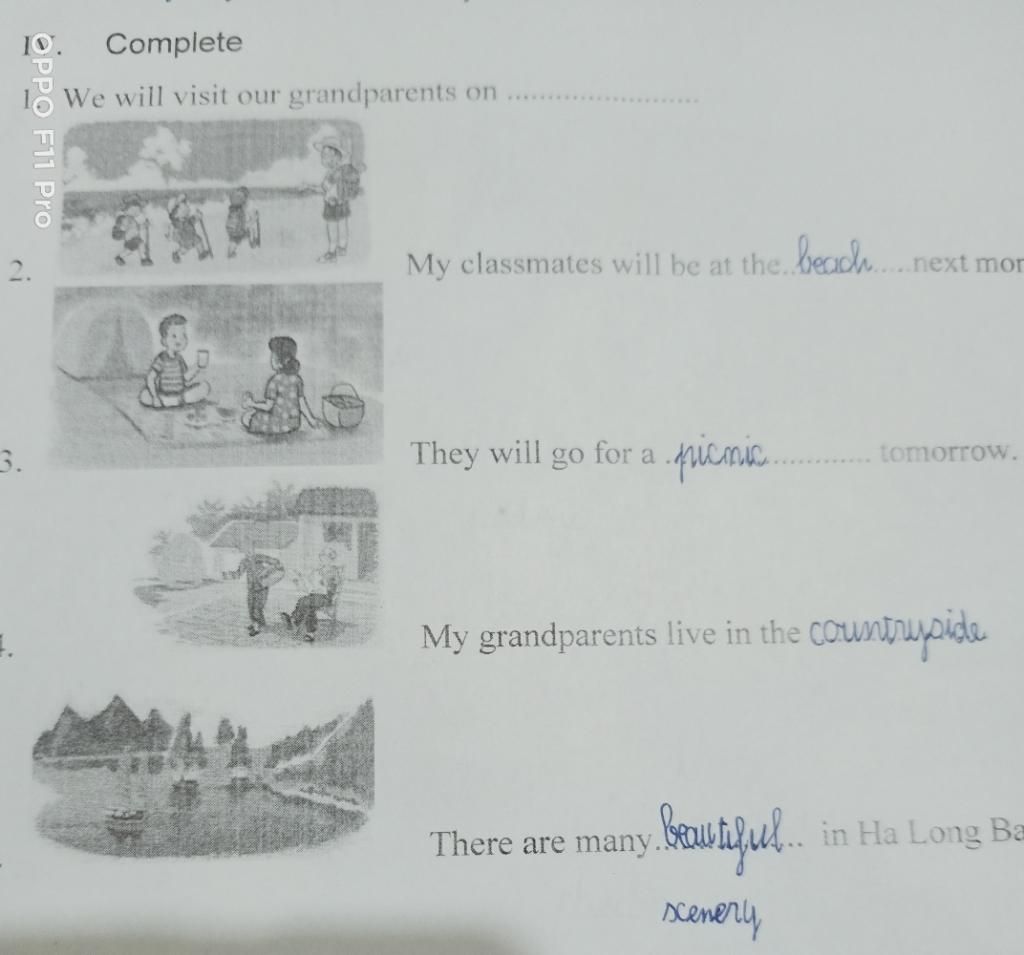 IV. Complete
1. We will visit our grandparents on ........................
2. My classmates will be at the..beach.....next mor
3. They will go for a .picnic............. tomorrow.
My grandparents live in the countryside
There are many.beautiful.. in Ha Long Ba
scenery
OPPO F11 Pro